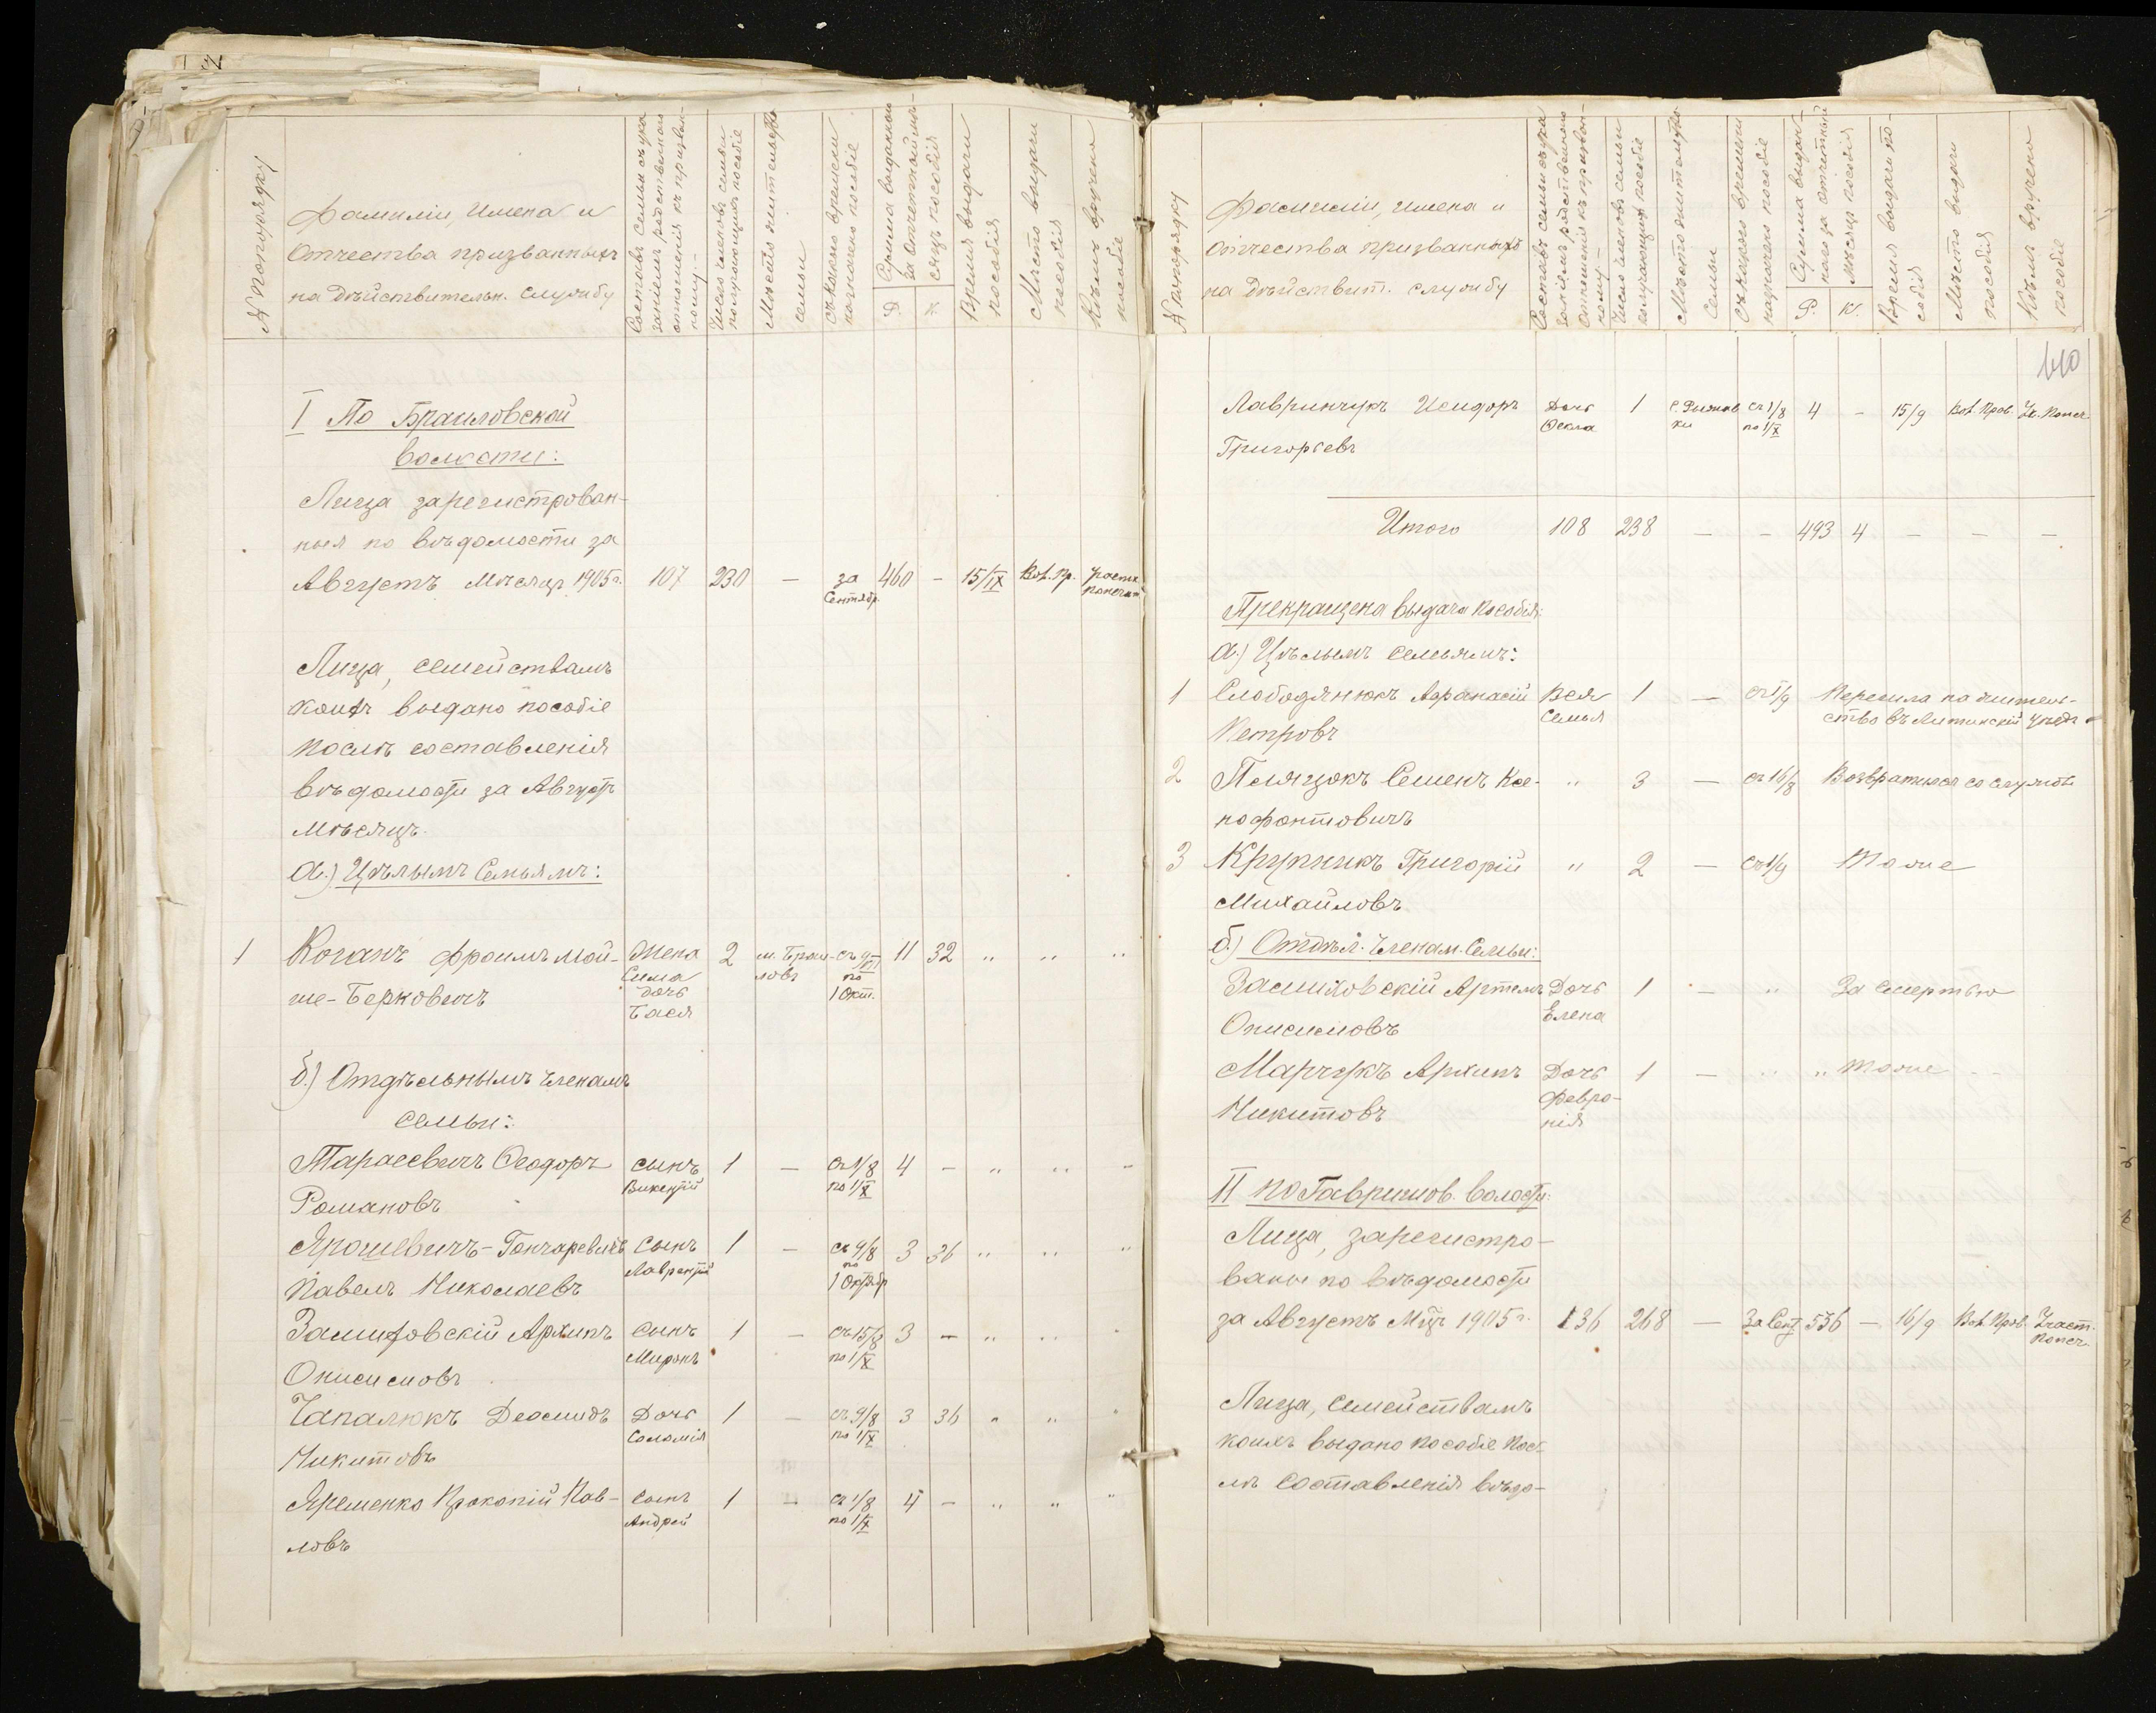 № по порядку
Фамиліи, Имена и
Отчества призванныхъ
на Дѣйствительн. службу
Составъ семьи съ ука-
заніемъ родственнаго
отношенія къ призван-
ному.-
Число членовъ семьи
получающихъ пособіе
Мѣсто жительства
семьи
Съ какого времени
назначено пособіе
Сумма выданнаго
за отчетный мѣ-
сяцъ пособія
Р. К.
Время выдачи
пособія
Мѣсто выдачи
пособія
Кѣмъ вручено
пособіе
I По Браиловской
волости:
Лица зарегистрован-
ныя по вѣдомости за
Августъ Мѣсяцъ 1905 г. 107 230 — за Сентябр. 460 — 15/IX Вол. Пр. Участк. попечит.
Лица, семействамъ
коихъ выдано пособіе
послѣ составленія
вѣдомости за Августъ
мѣсяцъ.
а.) Цѣлымъ Семьямъ:
1 Коганъ Фроимъ Мой- Жена 2 м. Браи- съ 9/VIII 11 32 " " "
ше-Берковичъ Сима дочь Бася ловъ по 1 Окт.
б.) Отдѣльнымъ членамъ
семьи:
Тарасевичъ Ѳеодоръ сынъ 1 — съ 1/8 4 — " " "
Романовъ Викентій по 1/X
Ярошевичъ-Гончаревичъ сынъ 1 — съ 9/8 3 36 " " "
Павелъ Николаевъ Лаврентій по 1 Октябр
Замиховскій Архипъ сынъ 1 — съ 15/8 3 — " " "
Онисимовъ Миронъ по 1/X
Чапалюкъ Деомидъ Дочь 1 — съ 9/8 3 36 " " "
Никитовъ Соломія по 1/X
Яременко Прокопій Пав- сынъ 1 — съ 1/8 4 — " " "
ловъ Андрей по 1/X
№ по порядку
Фамиліи, имена и
Отчества призванныхъ
на Дѣйствит. службу
Составъ семьи съ ука-
заніемъ родственнаго
отношенія къ призван-
ному —
Число членовъ семьи
получающихъ пособіе
Мѣсто жительства
Семьи
Съ какого времени
назначено пособіе
Сумма выдан-
наго за отчетный
мѣсяцъ пособія
Р. К.
Время выдачи по-
собія
Мѣсто выдачи
пособія
Кѣмъ вручено
пособіе
Лавринчукъ Исидоръ Дочь 1 съ 1/8 4 — 15/9 Вол. Прав. Уч. Попеч.
Григорьевъ Ѳекла по 1/X
Итого 108 238 — — 493 4 — — —
Прекращена выдача пособія:
а.) Цѣлымъ семьямъ:
1 Слободянюкъ Афанасій Вся 1 — съ 1/9 Перешла на житель-
Петровъ Семья ство въ Литинскій уѣздъ
2 Семенъ Ксе- " 3 — съ 16/8 Возвратился со службы
нофонтовичъ
3 Крупникъ Григорій " 2 — съ 1/9 Тоже
Михайловъ
б.) Отдѣл. Членам. Семьи:
Замиховскій Артемъ Дочь 1 — " За смертью
Онисимовъ Елена
Марчукъ Архипъ Дочь 1 — " " Тоже
Никитовъ Февро-
нія
II по Гавришов. волости:
Лица, зарегистро-
ваны по вѣдомости
за Августъ Мцъ 1905 г. 136 268 — За Сент 536 — 16/9 Вол. Прав. Участ. Попеч.
Лица, семействамъ
коихъ выдано пособіе пос-
лѣ составленія вѣдо-